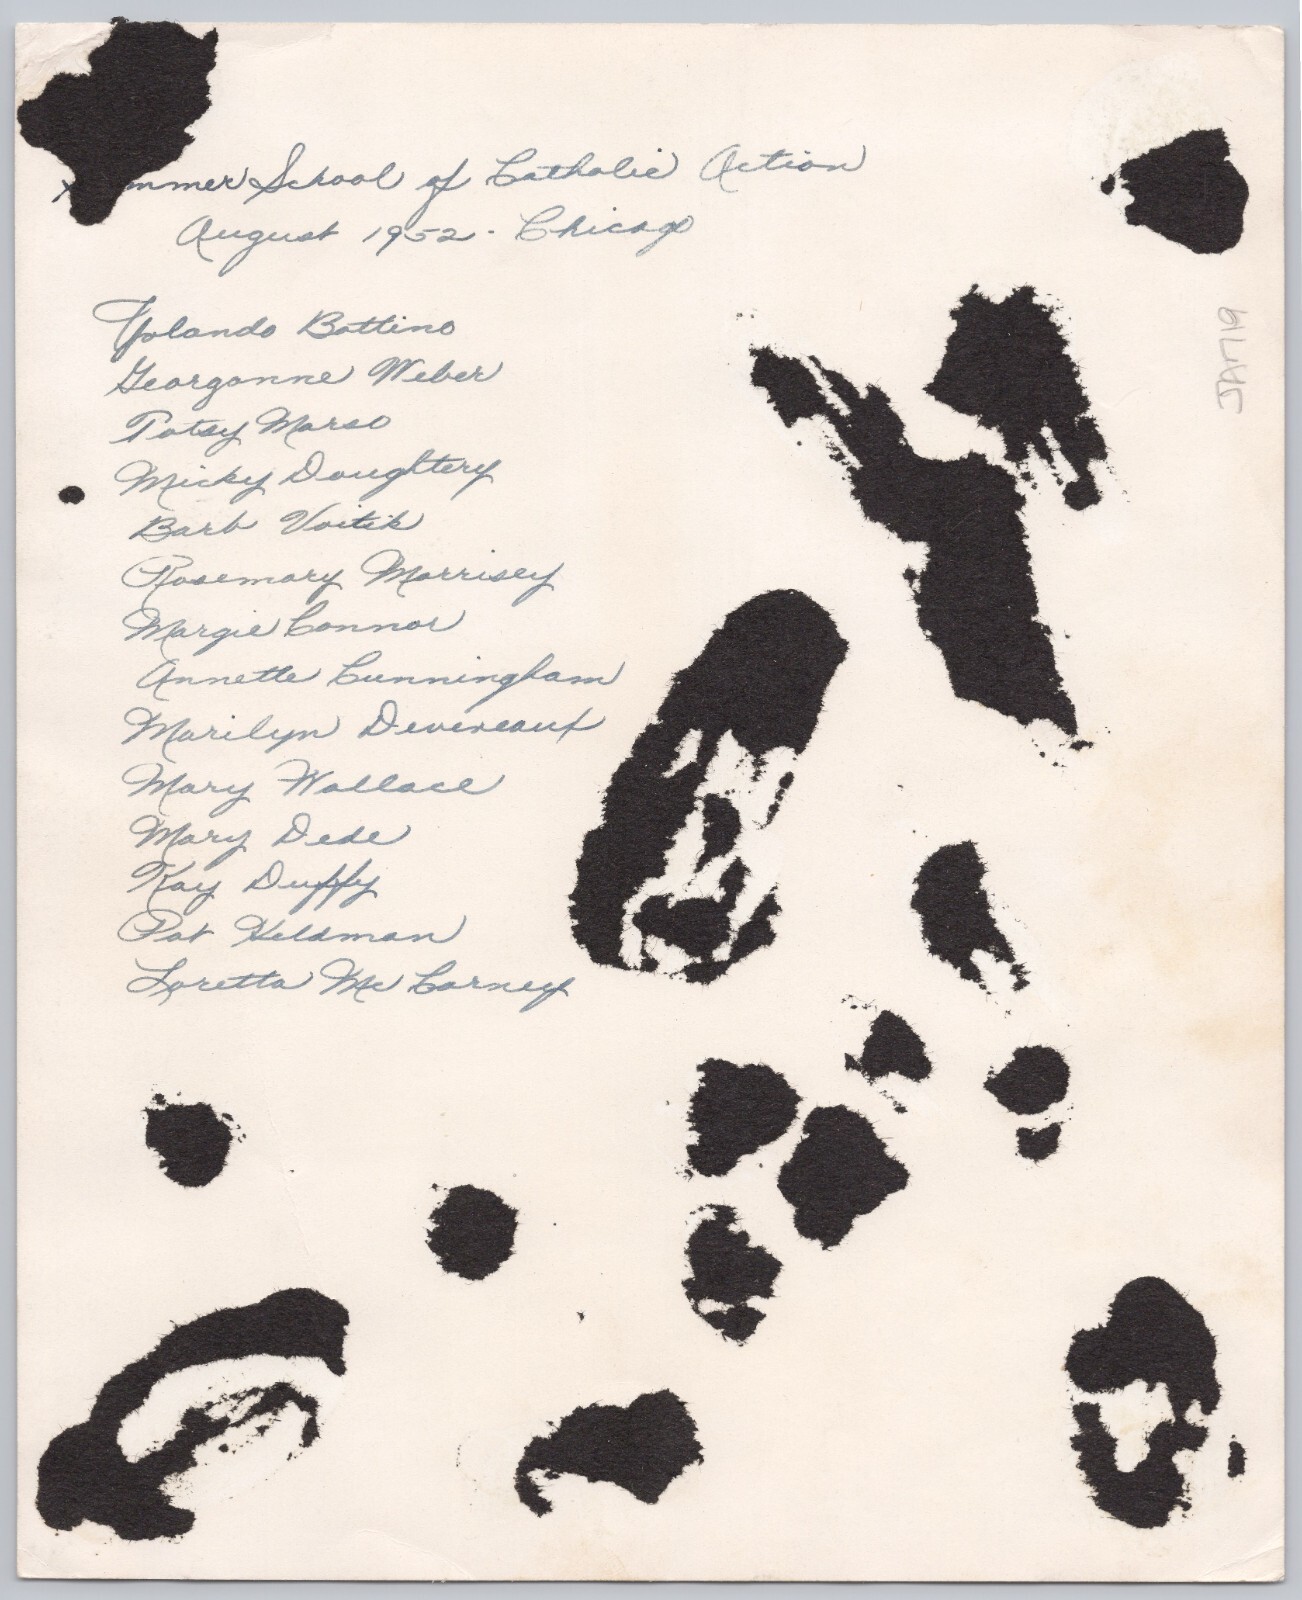 Summer School of Catholic Action
August 1952 - Chicago
Yolando Battino
Georganne Weber
Patsy Marso
Micky Doughtery
Barb Voitik
Rosemary Morrisey
Margie Connor
Annette Cunningham
Marilyn Devereaux
Mary Wallace
Mary Dede
Kay Duffy
Pat Heldman
Loretta Mc Carney